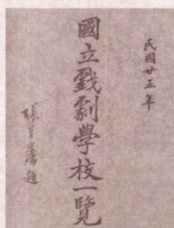 民國廿五年
國立戲劇學校一覽
張道藩題